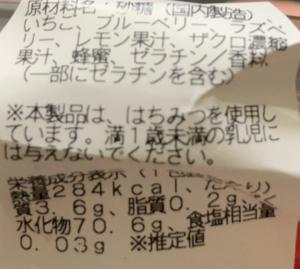 原材料名：砂糖（国内製造）
いちご、ブルーベリー、ラズベ
リー、レモン果汁、ザクロ濃縮
果汁、蜂蜜、ゼラチン／香料
（一部にゼラチンを含む）
※本製品は、はちみつを使用し
ています。満１歳未満の乳児に
は与えないでください。
栄養成分表示（１包装当たり）
熱量２８４ｋｃａｌ、たんぱく
質３．６ｇ、脂質０．２ｇ、炭
水化物７０．６ｇ、食塩相当量
０．０３ｇ　※推定値